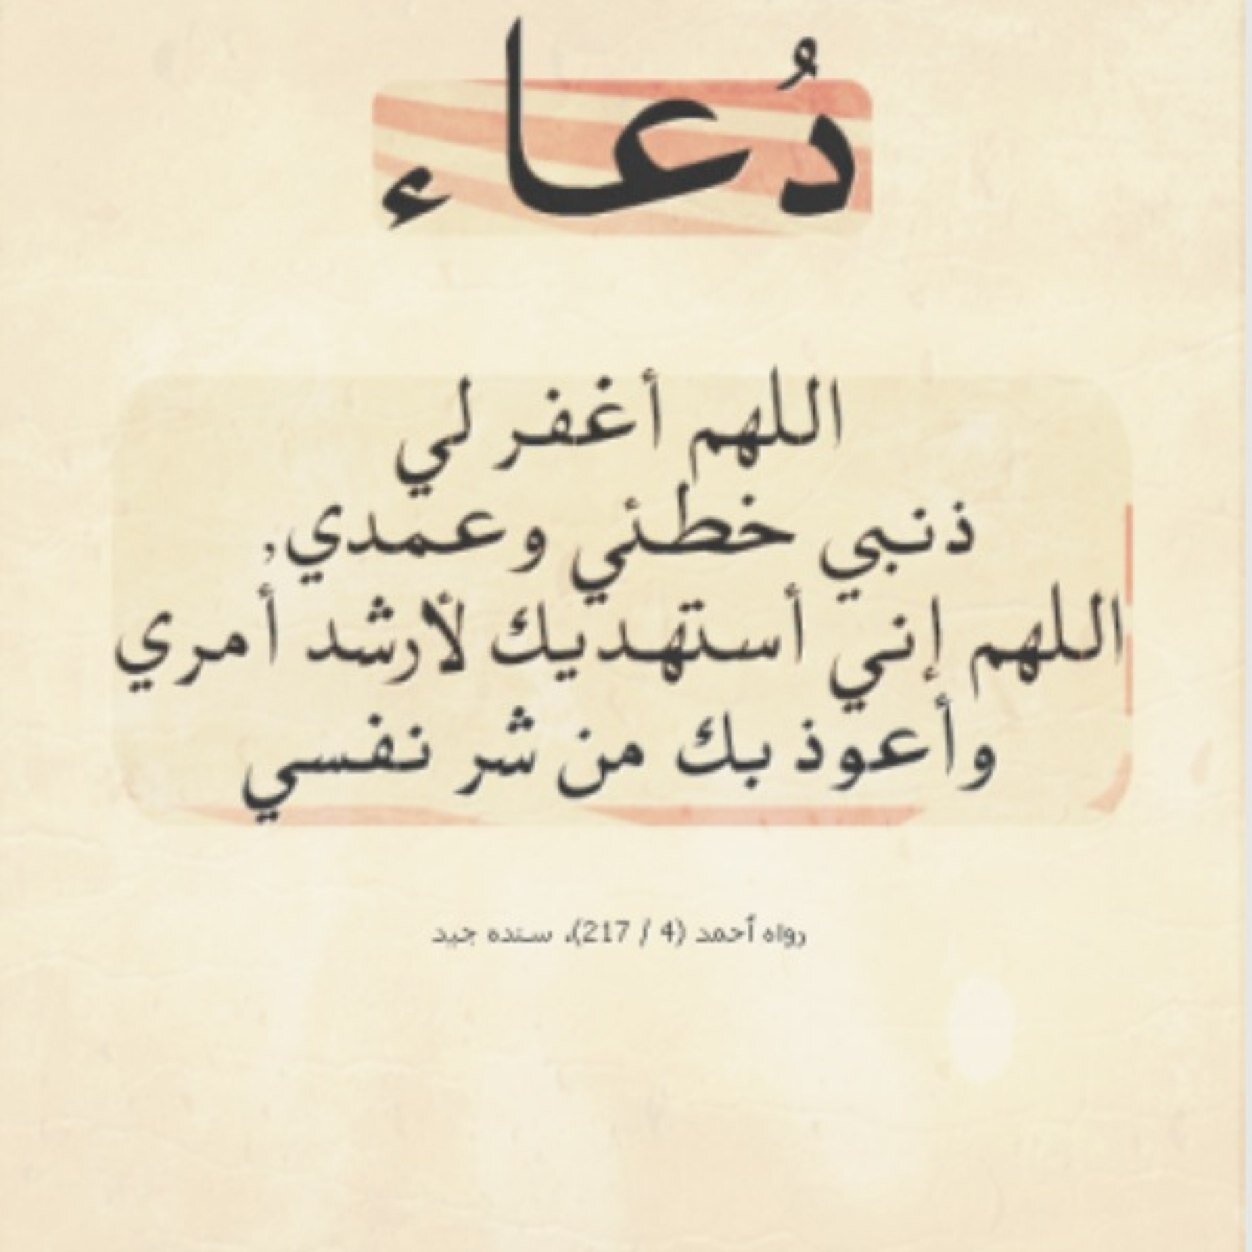 دُعاء
اللهم أغفر لي
ذنبي خطئي وعمدي,
اللهم إني أستهديك لأرشد أمري
وأعوذ بك من شر نفسي
رواه أحمد (4 / 217)، سنده جيد